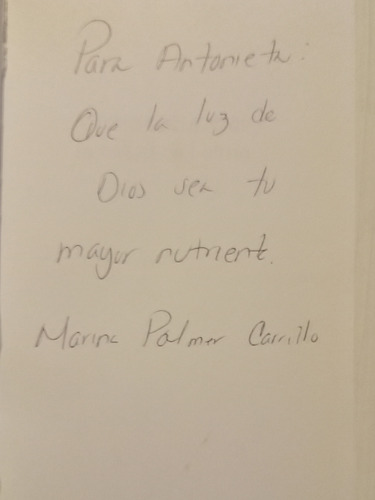 Para Antonieta:
Que la luz de
Dios sea tu
mayor nutriente.
Marina Palmer Carrillo